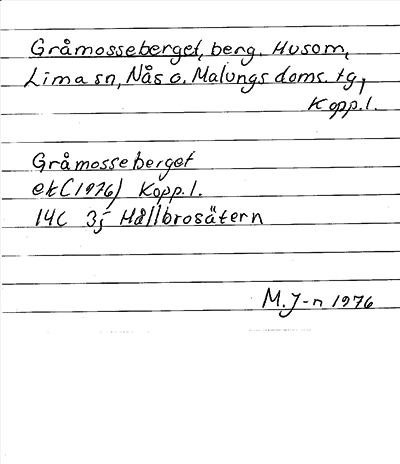 Gråmosseberget, berg. Husom,
Lima sn, Nås o. Malungs doms. tg,
Kopp. l.
Gråmosseberget
ek (1976) Kopp. l.
14C 3j Hållbrosätern
M. J-n 1976